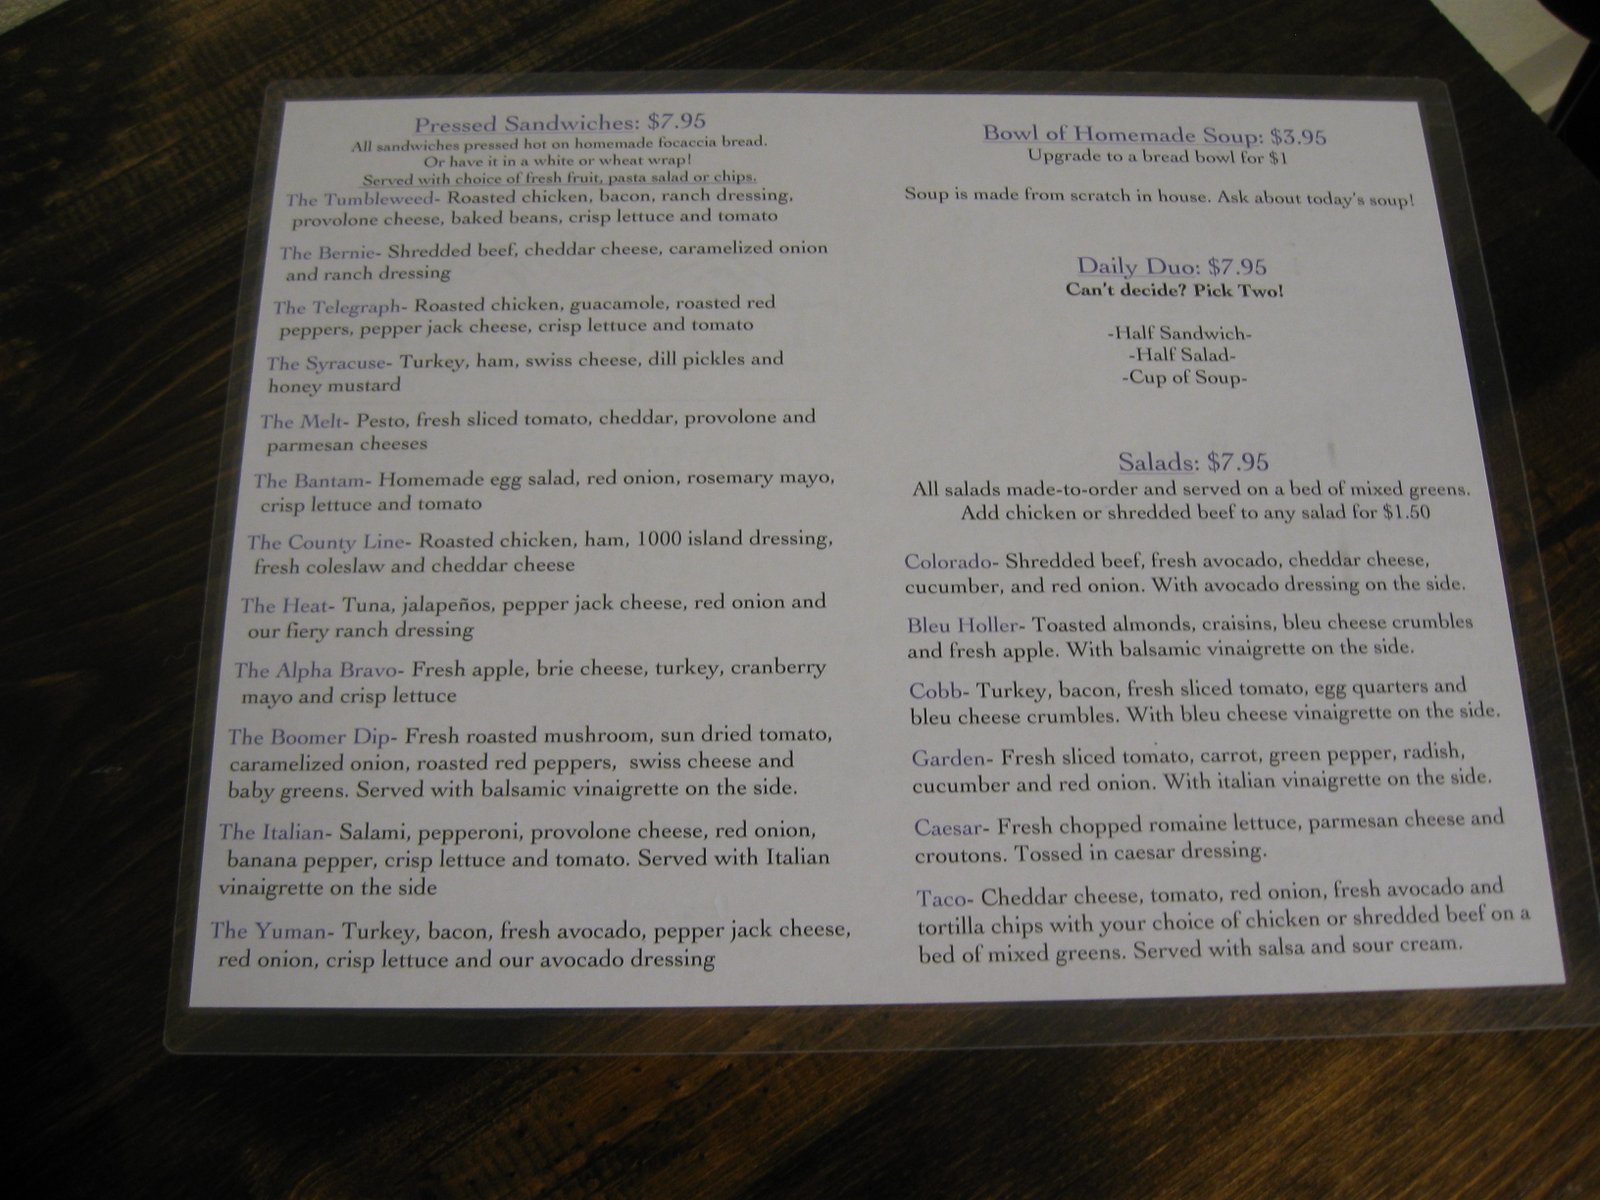 Pressed Sandwiches: $7.95
All sandwiches pressed hot on homemade focaccia bread.
Or have it in a white or wheat wrap!
Served with choice of fresh fruit, pasta salad or chips.
The Tumbleweed- Roasted chicken, bacon, ranch dressing,
provolone cheese, baked beans, crisp lettuce and tomato
The Bernie- Shredded beef, cheddar cheese, caramelized onion
and ranch dressing
The Telegraph- Roasted chicken, guacamole, roasted red
peppers, pepper jack cheese, crisp lettuce and tomato
The Syracuse- Turkey, ham, swiss cheese, dill pickles and
honey mustard
The Melt- Pesto, fresh sliced tomato, cheddar, provolone and
parmesan cheeses
The Bantam- Homemade egg salad, red onion, rosemary mayo,
crisp lettuce and tomato
The County Line- Roasted chicken, ham, 1000 island dressing,
fresh coleslaw and cheddar cheese
The Heat- Tuna, jalapeños, pepper jack cheese, red onion and
our fiery ranch dressing
The Alpha Bravo- Fresh apple, brie cheese, turkey, cranberry
mayo and crisp lettuce
The Boomer Dip- Fresh roasted mushroom, sun dried tomato,
caramelized onion, roasted red peppers, swiss cheese and
baby greens. Served with balsamic vinaigrette on the side.
The Italian- Salami, pepperoni, provolone cheese, red onion,
banana pepper, crisp lettuce and tomato. Served with Italian
vinaigrette on the side
The Yuman- Turkey, bacon, fresh avocado, pepper jack cheese,
red onion, crisp lettuce and our avocado dressing
Bowl of Homemade Soup: $3.95
Upgrade to a bread bowl for $1
Soup is made from scratch in house. Ask about today's soup!
Daily Duo: $7.95
Can't decide? Pick Two!
-Half Sandwich-
-Half Salad-
-Cup of Soup-
Salads: $7.95
All salads made-to-order and served on a bed of mixed greens.
Add chicken or shredded beef to any salad for $1.50
Colorado- Shredded beef, fresh avocado, cheddar cheese,
cucumber, and red onion. With avocado dressing on the side.
Bleu Holler- Toasted almonds, craisins, bleu cheese crumbles
and fresh apple. With balsamic vinaigrette on the side.
Cobb- Turkey, bacon, fresh sliced tomato, egg quarters and
bleu cheese crumbles. With bleu cheese vinaigrette on the side.
Garden- Fresh sliced tomato, carrot, green pepper, radish,
cucumber and red onion. With italian vinaigrette on the side.
Caesar- Fresh chopped romaine lettuce, parmesan cheese and
croutons. Tossed in caesar dressing.
Taco- Cheddar cheese, tomato, red onion, fresh avocado and
tortilla chips with your choice of chicken or shredded beef on a
bed of mixed greens. Served with salsa and sour cream.